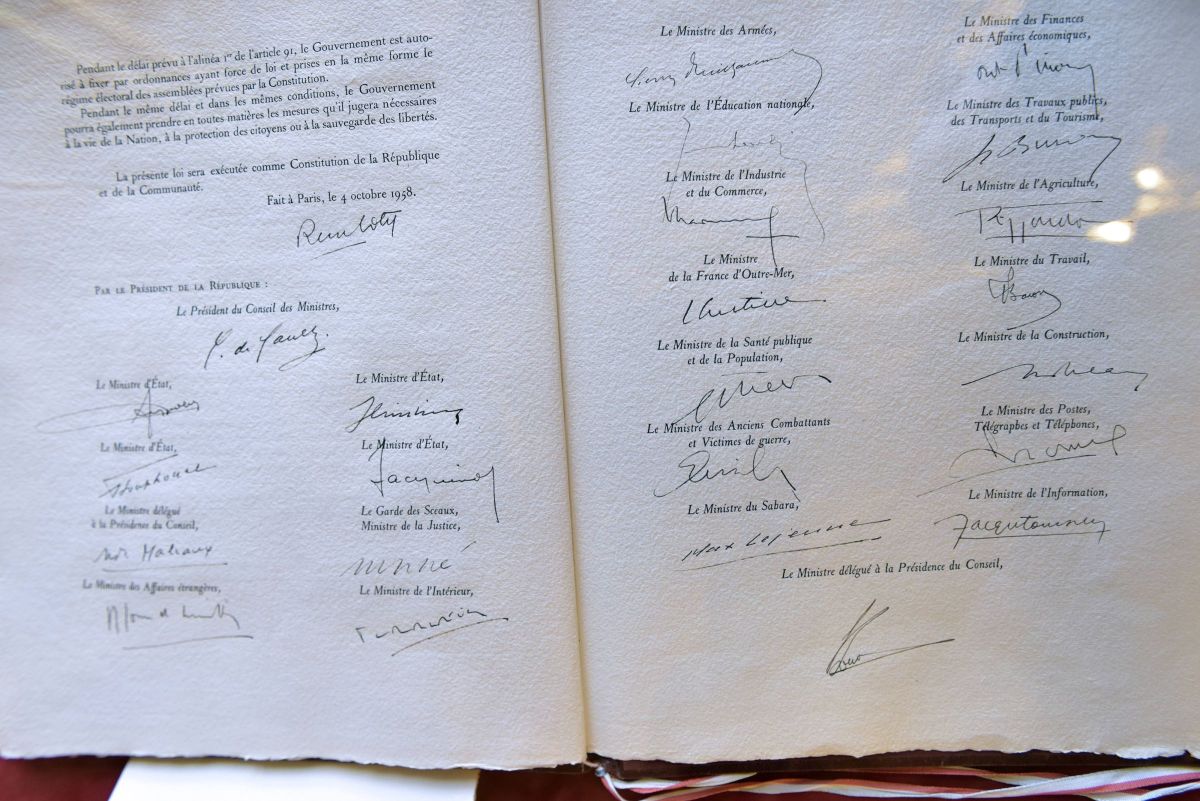 Pendant le délai prévu à l'alinéa 1er de l'article 91, le Gouvernement est auto-
risé à fixer par ordonnances ayant force de loi et prises en la même forme le
régime électoral des assemblées prévues par la Constitution.
Pendant le même délai et dans les mêmes conditions, le Gouvernement
pourra également prendre en toutes matières les mesures qu'il jugera nécessaires
à la vie de la Nation, à la protection des citoyens ou à la sauvegarde des libertés.
La présente loi sera exécutée comme Constitution de la République
et de la Communauté.
Fait à Paris, le 4 octobre 1958.
René Coty
Par le Président de la République :
Le Président du Conseil des Ministres,
C. de Gaulle.
Le Ministre d'État,
Le Ministre d'État,
Le Ministre d'État,
Le Ministre d'État,
Jacquinot
Le Ministre délégué
à la Présidence du Conseil,
Malraux
Le Garde des Sceaux,
Ministre de la Justice,
Le Ministre des Affaires étrangères,
Le Ministre de l'Intérieur,
Le Ministre des Armées,
Le Ministre de l'Éducation nationale,
Le Ministre de l'Industrie
et du Commerce,
Le Ministre
de la France d'Outre-Mer,
Le Ministre de la Santé publique
et de la Population,
Le Ministre des Anciens Combattants
et Victimes de guerre,
Le Ministre du Sahara,
Max Lejeune
Le Ministre des Finances
et des Affaires économiques,
Le Ministre des Travaux publics,
des Transports et du Tourisme,
Le Ministre de l'Agriculture,
Le Ministre du Travail,
Le Ministre de la Construction,
Le Ministre des Postes,
Télégraphes et Téléphones,
Le Ministre de l'Information,
Le Ministre délégué à la Présidence du Conseil,